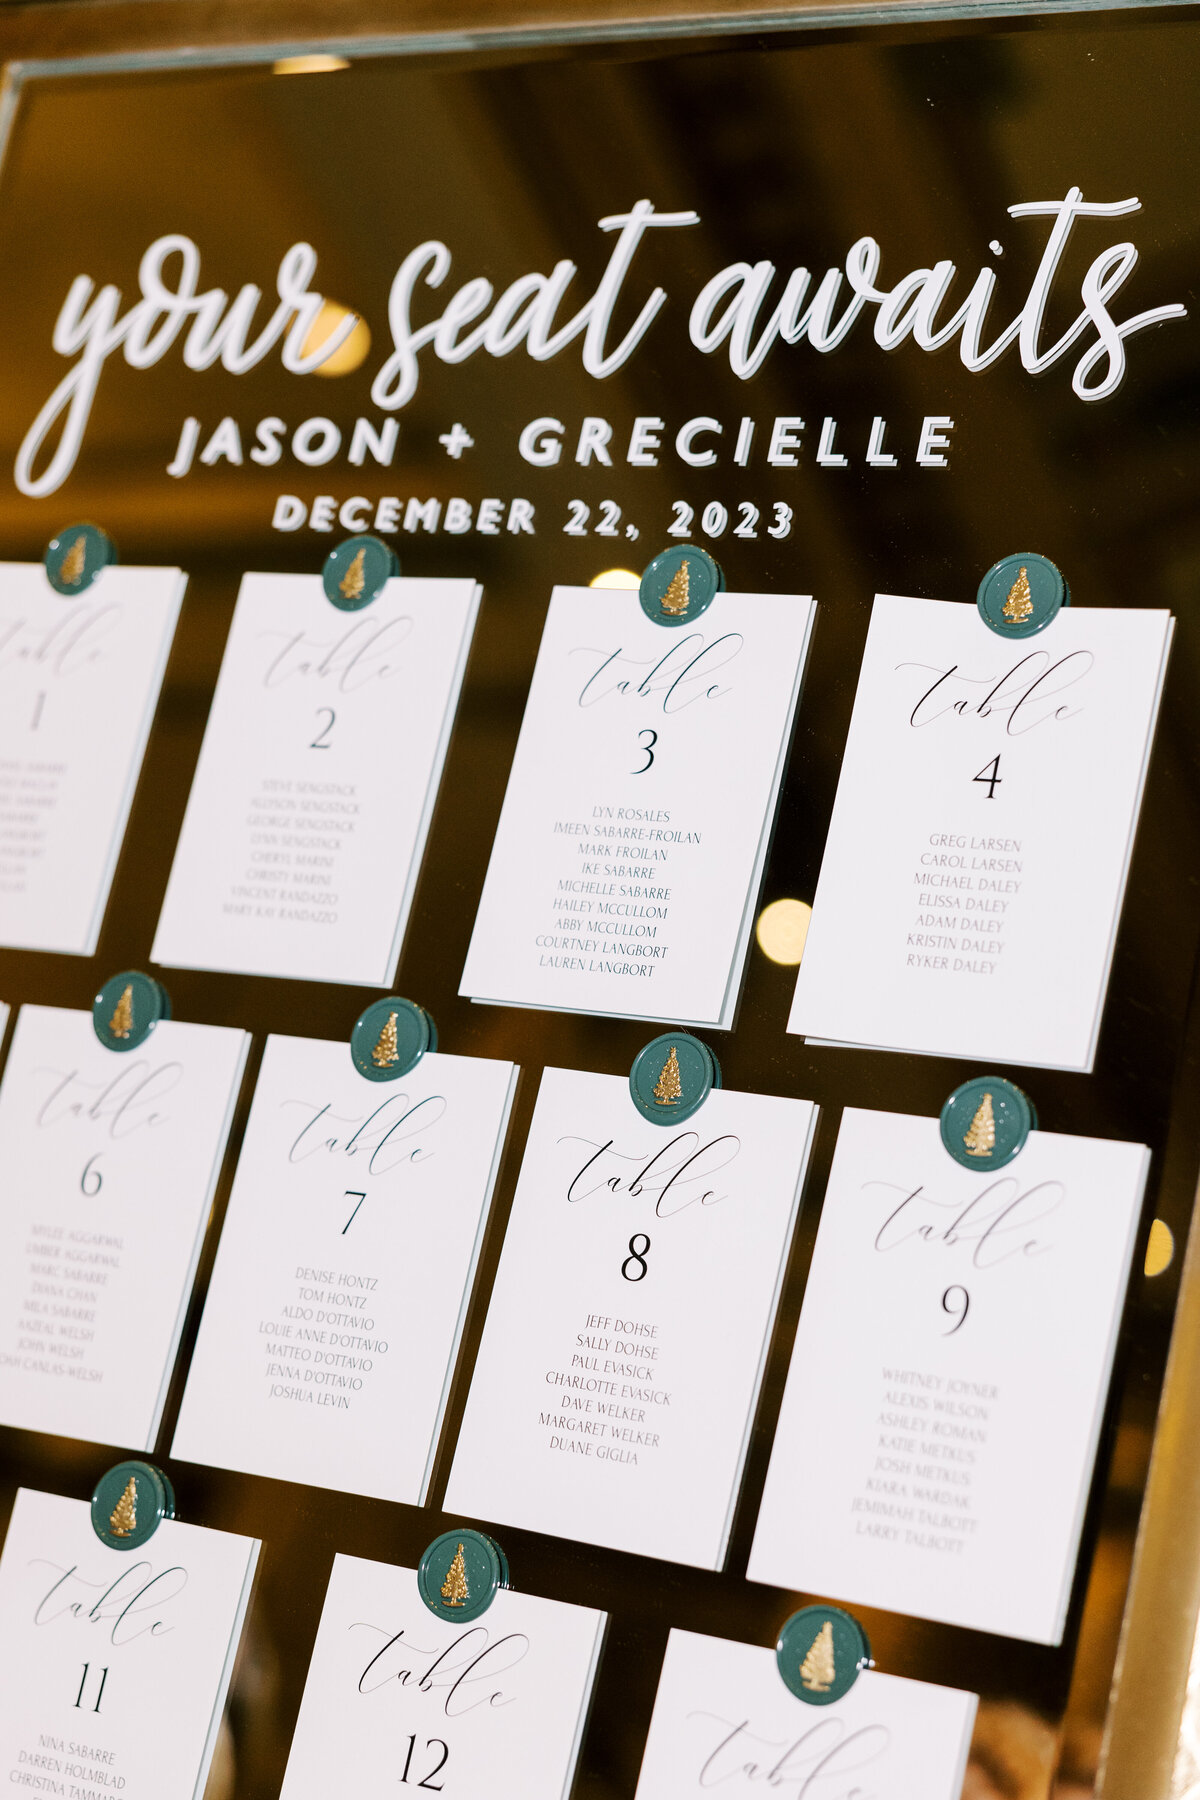 your seat awaits
JASON + GRECIELLE
DECEMBER 22, 2023
table
1
SABARRE
table
2
STEVE SENGSTACK
ALLYSON SENGSTACK
GEORGE SENGSTACK
LYNN SENGSTACK
CHERYL MARINI
CHRISTY MARINI
VINCENT RANDAZZO
MARY KAY RANDAZZO
table
3
LYN ROSALES
IMEEN SABARRE-FROILAN
MARK FROILAN
IKE SABARRE
MICHELLE SABARRE
HAILEY MCCULLOM
ABBY MCCULLOM
COURTNEY LANGBORT
LAUREN LANGBORT
table
4
GREG LARSEN
CAROL LARSEN
MICHAEL DALEY
ELISSA DALEY
ADAM DALEY
KRISTIN DALEY
RYKER DALEY
table
6
MYLEE AGGARWAL
UMBER AGGARWAL
MARC SABARRE
DIANA CHAN
MILA SABARRE
WELSH
JOHN WELSH
CANLAS-WELSH
table
7
DENISE HONTZ
TOM HONTZ
ALDO D'OTTAVIO
LOUIE ANNE D'OTTAVIO
MATTEO D'OTTAVIO
JENNA D'OTTAVIO
JOSHUA LEVIN
table
8
JEFF DOHSE
SALLY DOHSE
PAUL EVASICK
CHARLOTTE EVASICK
DAVE WELKER
MARGARET WELKER
DUANE GIGLIA
table
9
WHITNEY JOYNER
ALEXIS WILSON
ASHLEY ROMAN
KATIE METKUS
JOSH METKUS
KIARA WARDAK
JEMIMAH TALBOTT
LARRY TALBOTT
table
11
NINA SABARRE
DARREN HOLMBLAD
CHRISTINA TAMMARO
table
12
table